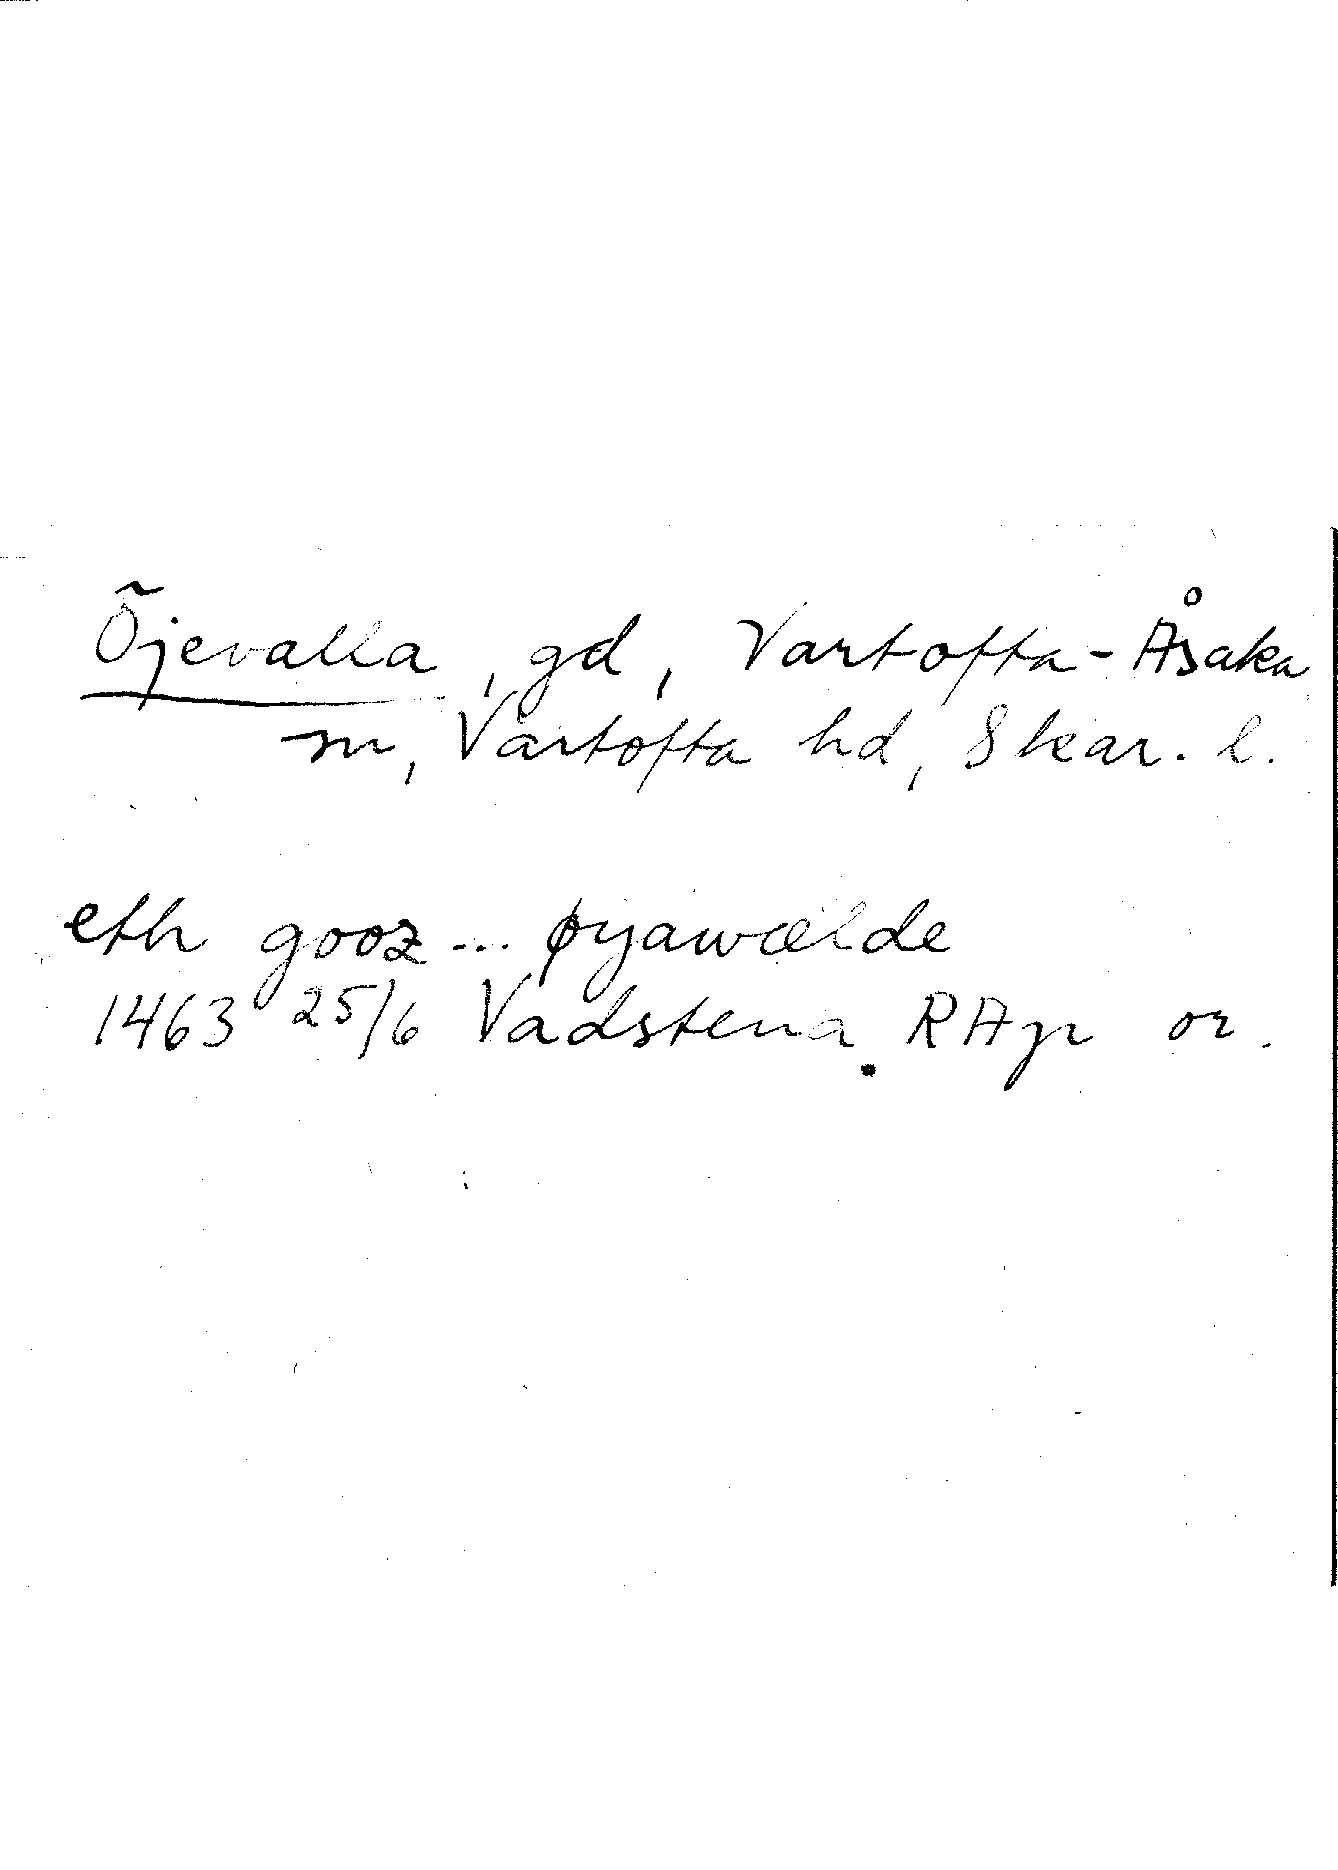 Öjevalla, gd, Vartofta-Åsaka
sn, Vartofta hd, Skar. l.
eth gooz... øyawælde
1463 25/6 Vadstena. RAp or.